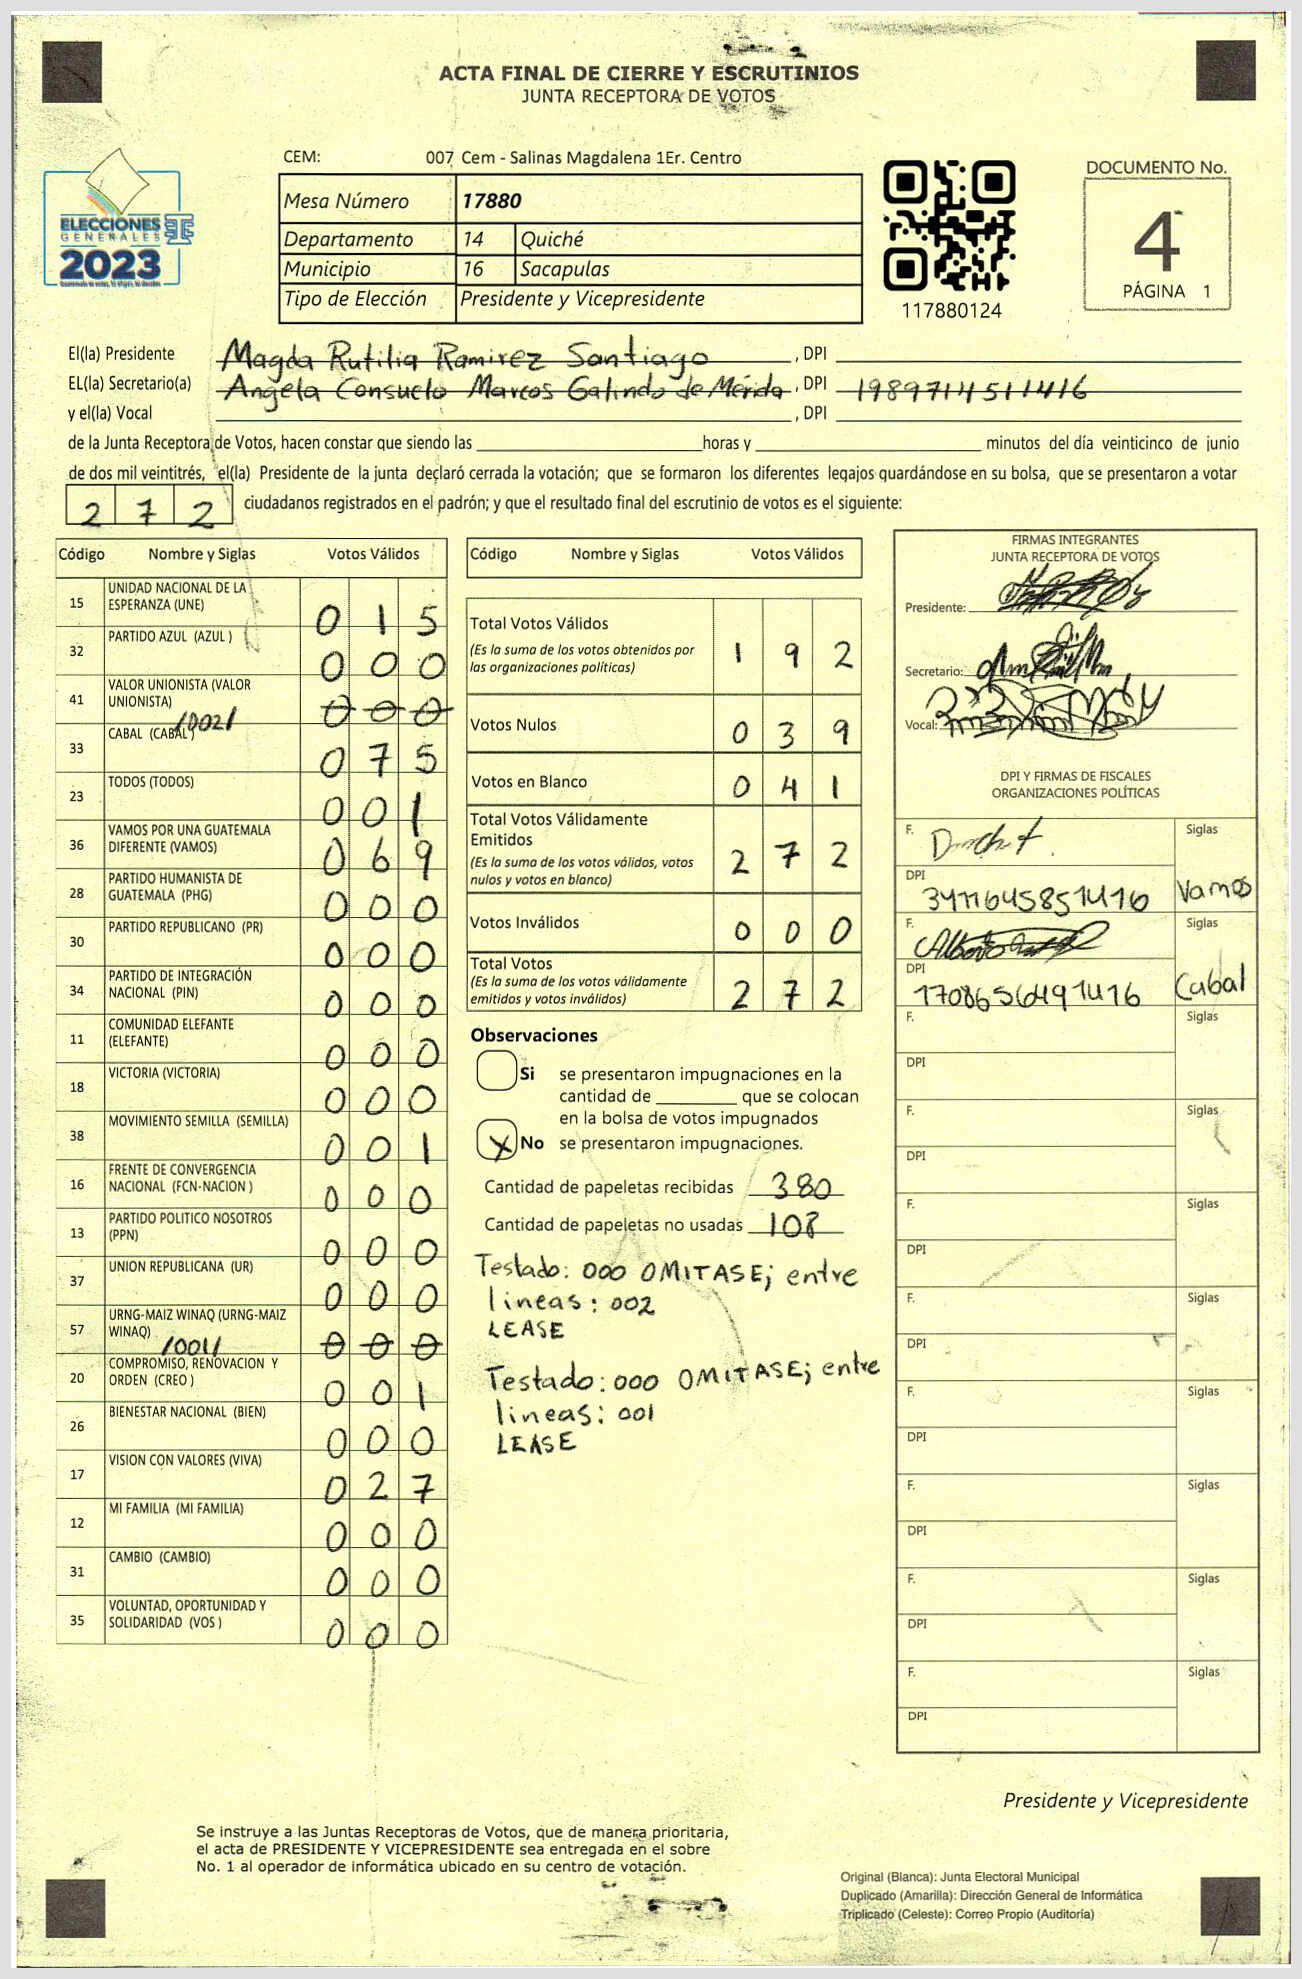 ACTA FINAL DE CIERRE Y ESCRUTINIOS
JUNTA RECEPTORA DE VOTOS
CEM: 007 Cem - Salinas Magdalena 1Er. Centro
ELECCIONES
GENERALES
2023
Mesa Número 17880
Departamento 14 Quiché
Municipio 16 Sacapulas
Tipo de Elección Presidente y Vicepresidente
117880124
DOCUMENTO No.
4
PÁGINA 1
El(la) Presidente Magda Rutilia Ramirez Santiago , DPI
EL(la) Secretario(a) Angela Consuelo Marcos Galindo de Mérida , DPI 1989714511416
y el(la) Vocal , DPI
de la Junta Receptora de Votos, hacen constar que siendo las horas y minutos del día veinticinco de junio
de dos mil veintitrés, el(la) Presidente de la junta declaró cerrada la votación; que se formaron los diferentes legajos guardándose en su bolsa, que se presentaron a votar
272 ciudadanos registrados en el padrón; y que el resultado final del escrutinio de votos es el siguiente:
Código Nombre y Siglas Votos Válidos
15 UNIDAD NACIONAL DE LA ESPERANZA (UNE) 015
32 PARTIDO AZUL (AZUL ) 000
41 VALOR UNIONISTA (VALOR UNIONISTA) 000
/002/
33 CABAL (CABAL) 075
23 TODOS (TODOS) 001
36 VAMOS POR UNA GUATEMALA DIFERENTE (VAMOS) 069
28 PARTIDO HUMANISTA DE GUATEMALA (PHG) 000
30 PARTIDO REPUBLICANO (PR) 000
34 PARTIDO DE INTEGRACIÓN NACIONAL (PIN) 000
11 COMUNIDAD ELEFANTE (ELEFANTE) 000
18 VICTORIA (VICTORIA) 000
38 MOVIMIENTO SEMILLA (SEMILLA) 001
16 FRENTE DE CONVERGENCIA NACIONAL (FCN-NACION ) 000
13 PARTIDO POLITICO NOSOTROS (PPN) 000
37 UNION REPUBLICANA (UR) 000
57 URNG-MAIZ WINAQ (URNG-MAIZ WINAQ) 000
/001/
20 COMPROMISO, RENOVACION Y ORDEN (CREO ) 001
26 BIENESTAR NACIONAL (BIEN) 000
17 VISION CON VALORES (VIVA) 027
12 MI FAMILIA (MI FAMILIA) 000
31 CAMBIO (CAMBIO) 000
35 VOLUNTAD, OPORTUNIDAD Y SOLIDARIDAD (VOS ) 000
Código Nombre y Siglas Votos Válidos
Total Votos Válidos 192
(Es la suma de los votos obtenidos por
las organizaciones políticas)
Votos Nulos 039
Votos en Blanco 041
Total Votos Válidamente
Emitidos 272
(Es la suma de los votos válidos, votos
nulos y votos en blanco)
Votos Inválidos 000
Total Votos 272
(Es la suma de los votos válidamente
emitidos y votos inválidos)
Observaciones
Si se presentaron impugnaciones en la
cantidad de que se colocan
en la bolsa de votos impugnados
X No se presentaron impugnaciones.
Cantidad de papeletas recibidas 380
Cantidad de papeletas no usadas 108
Testado: 000 OMITASE; entre
lineas: 002
LEASE
Testado: 000 OMITASE; entre
lineas: 001
LEASE
FIRMAS INTEGRANTES
JUNTA RECEPTORA DE VOTOS
Presidente:
Secretario:
Vocal:
DPI Y FIRMAS DE FISCALES
ORGANIZACIONES POLÍTICAS
F. Siglas
DPI 3411645851416 Vamos
F. Siglas
DPI 1708656491416 Cabal
F. Siglas
DPI
F. Siglas
DPI
F. Siglas
DPI
F. Siglas
DPI
F. Siglas
DPI
F. Siglas
DPI
F. Siglas
DPI
F. Siglas
DPI
Presidente y Vicepresidente
Se instruye a las Juntas Receptoras de Votos, que de manera prioritaria,
el acta de PRESIDENTE Y VICEPRESIDENTE sea entregada en el sobre
No. 1 al operador de informática ubicado en su centro de votación.
Original (Blanca): Junta Electoral Municipal
Duplicado (Amarilla): Dirección General de Informática
Triplicado (Celeste): Correo Propio (Auditoría)